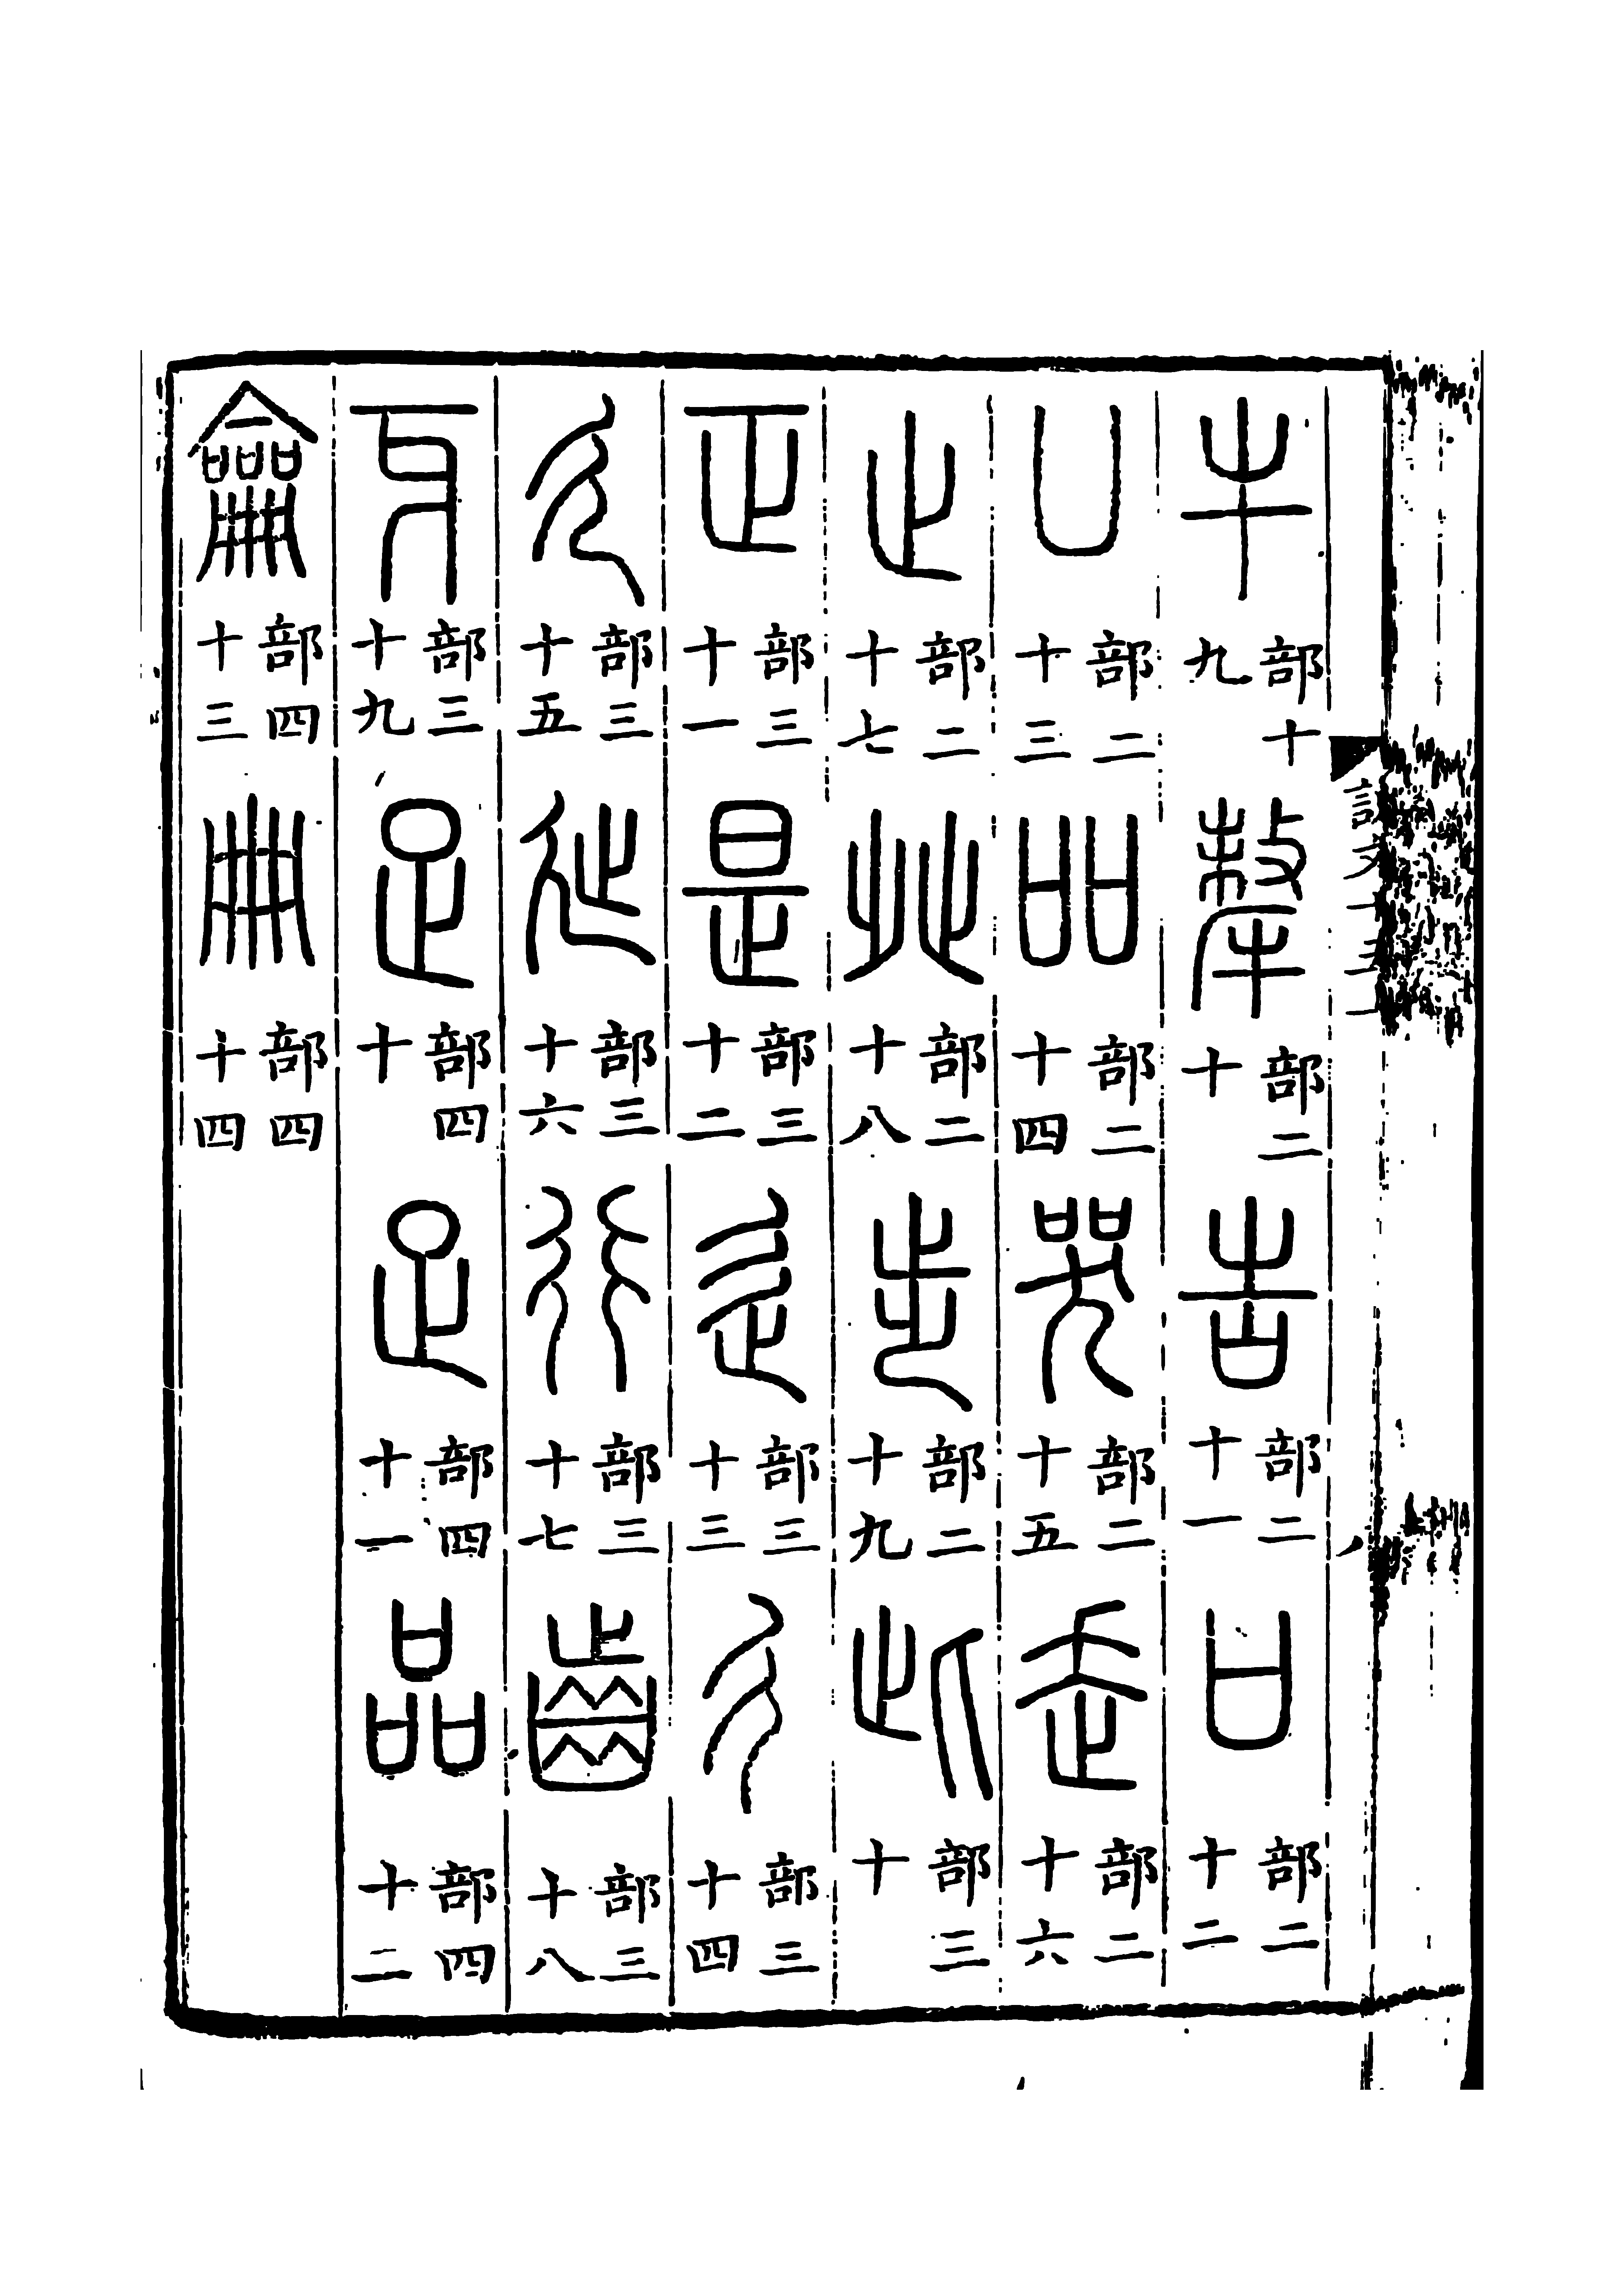 說文
牛部十九犛部二十告部二十一口部二十二
凵部二十三吅部二十四哭部二十五走部二十六
止部二十七癶部二十八步部二十九此部三十
正部三十一是部三十二辵部三十三彳部三十四
廴部三十五㢟部三十六行部三十七齒部三十八
牙部三十九足部四十疋部四十一品部四十二
龠部四十三冊部四十四